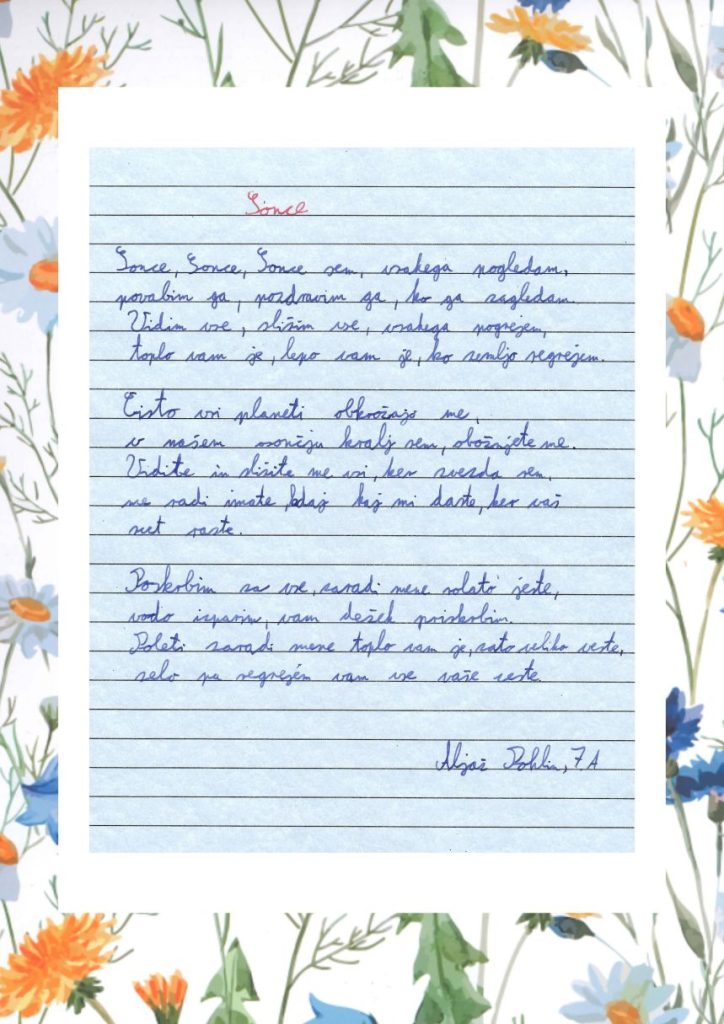 Sonce
Sonce, Sonce, Sonce sem, vsakega pogledam,
povabim ga, pozdravim ga, ko ga zagledam.
Vidim vse, slišim vse, vsakega pogrejem,
toplo vam je, lepo vam je, ko zemljo segrejem.
Čisto vsi planeti obkrožajo me,
v našem osončju kralj sem, obožujete me.
Vidite in slišite me vsi, ker zvezda sem,
me radi imate, kdaj kaj mi daste, ker vaš
svet raste.
Poskrbim za vse, zaradi mene solato jeste,
vodo izparim, vam dežek priskrbim.
Poleti zaradi mene toplo vam je, zato veliko veste,
zelo pa segrejem vam vse vaše ceste.
Aljaž Pohlin, 7.A